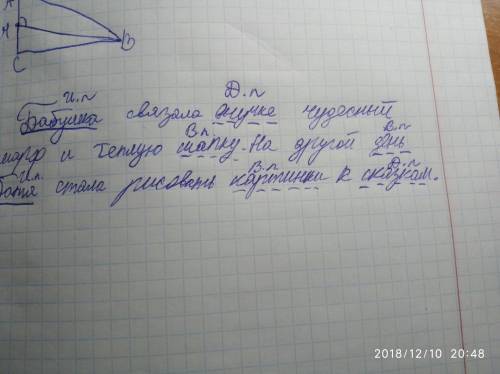 А
Н
В
С
И.п Д.п
Бабушка связала внучке чудесный
В.п
шарф и теплую шапку. На другой день
И.п В.п Д.п
стала рисовать картинки к сказкам.
2018/12/10 20:48